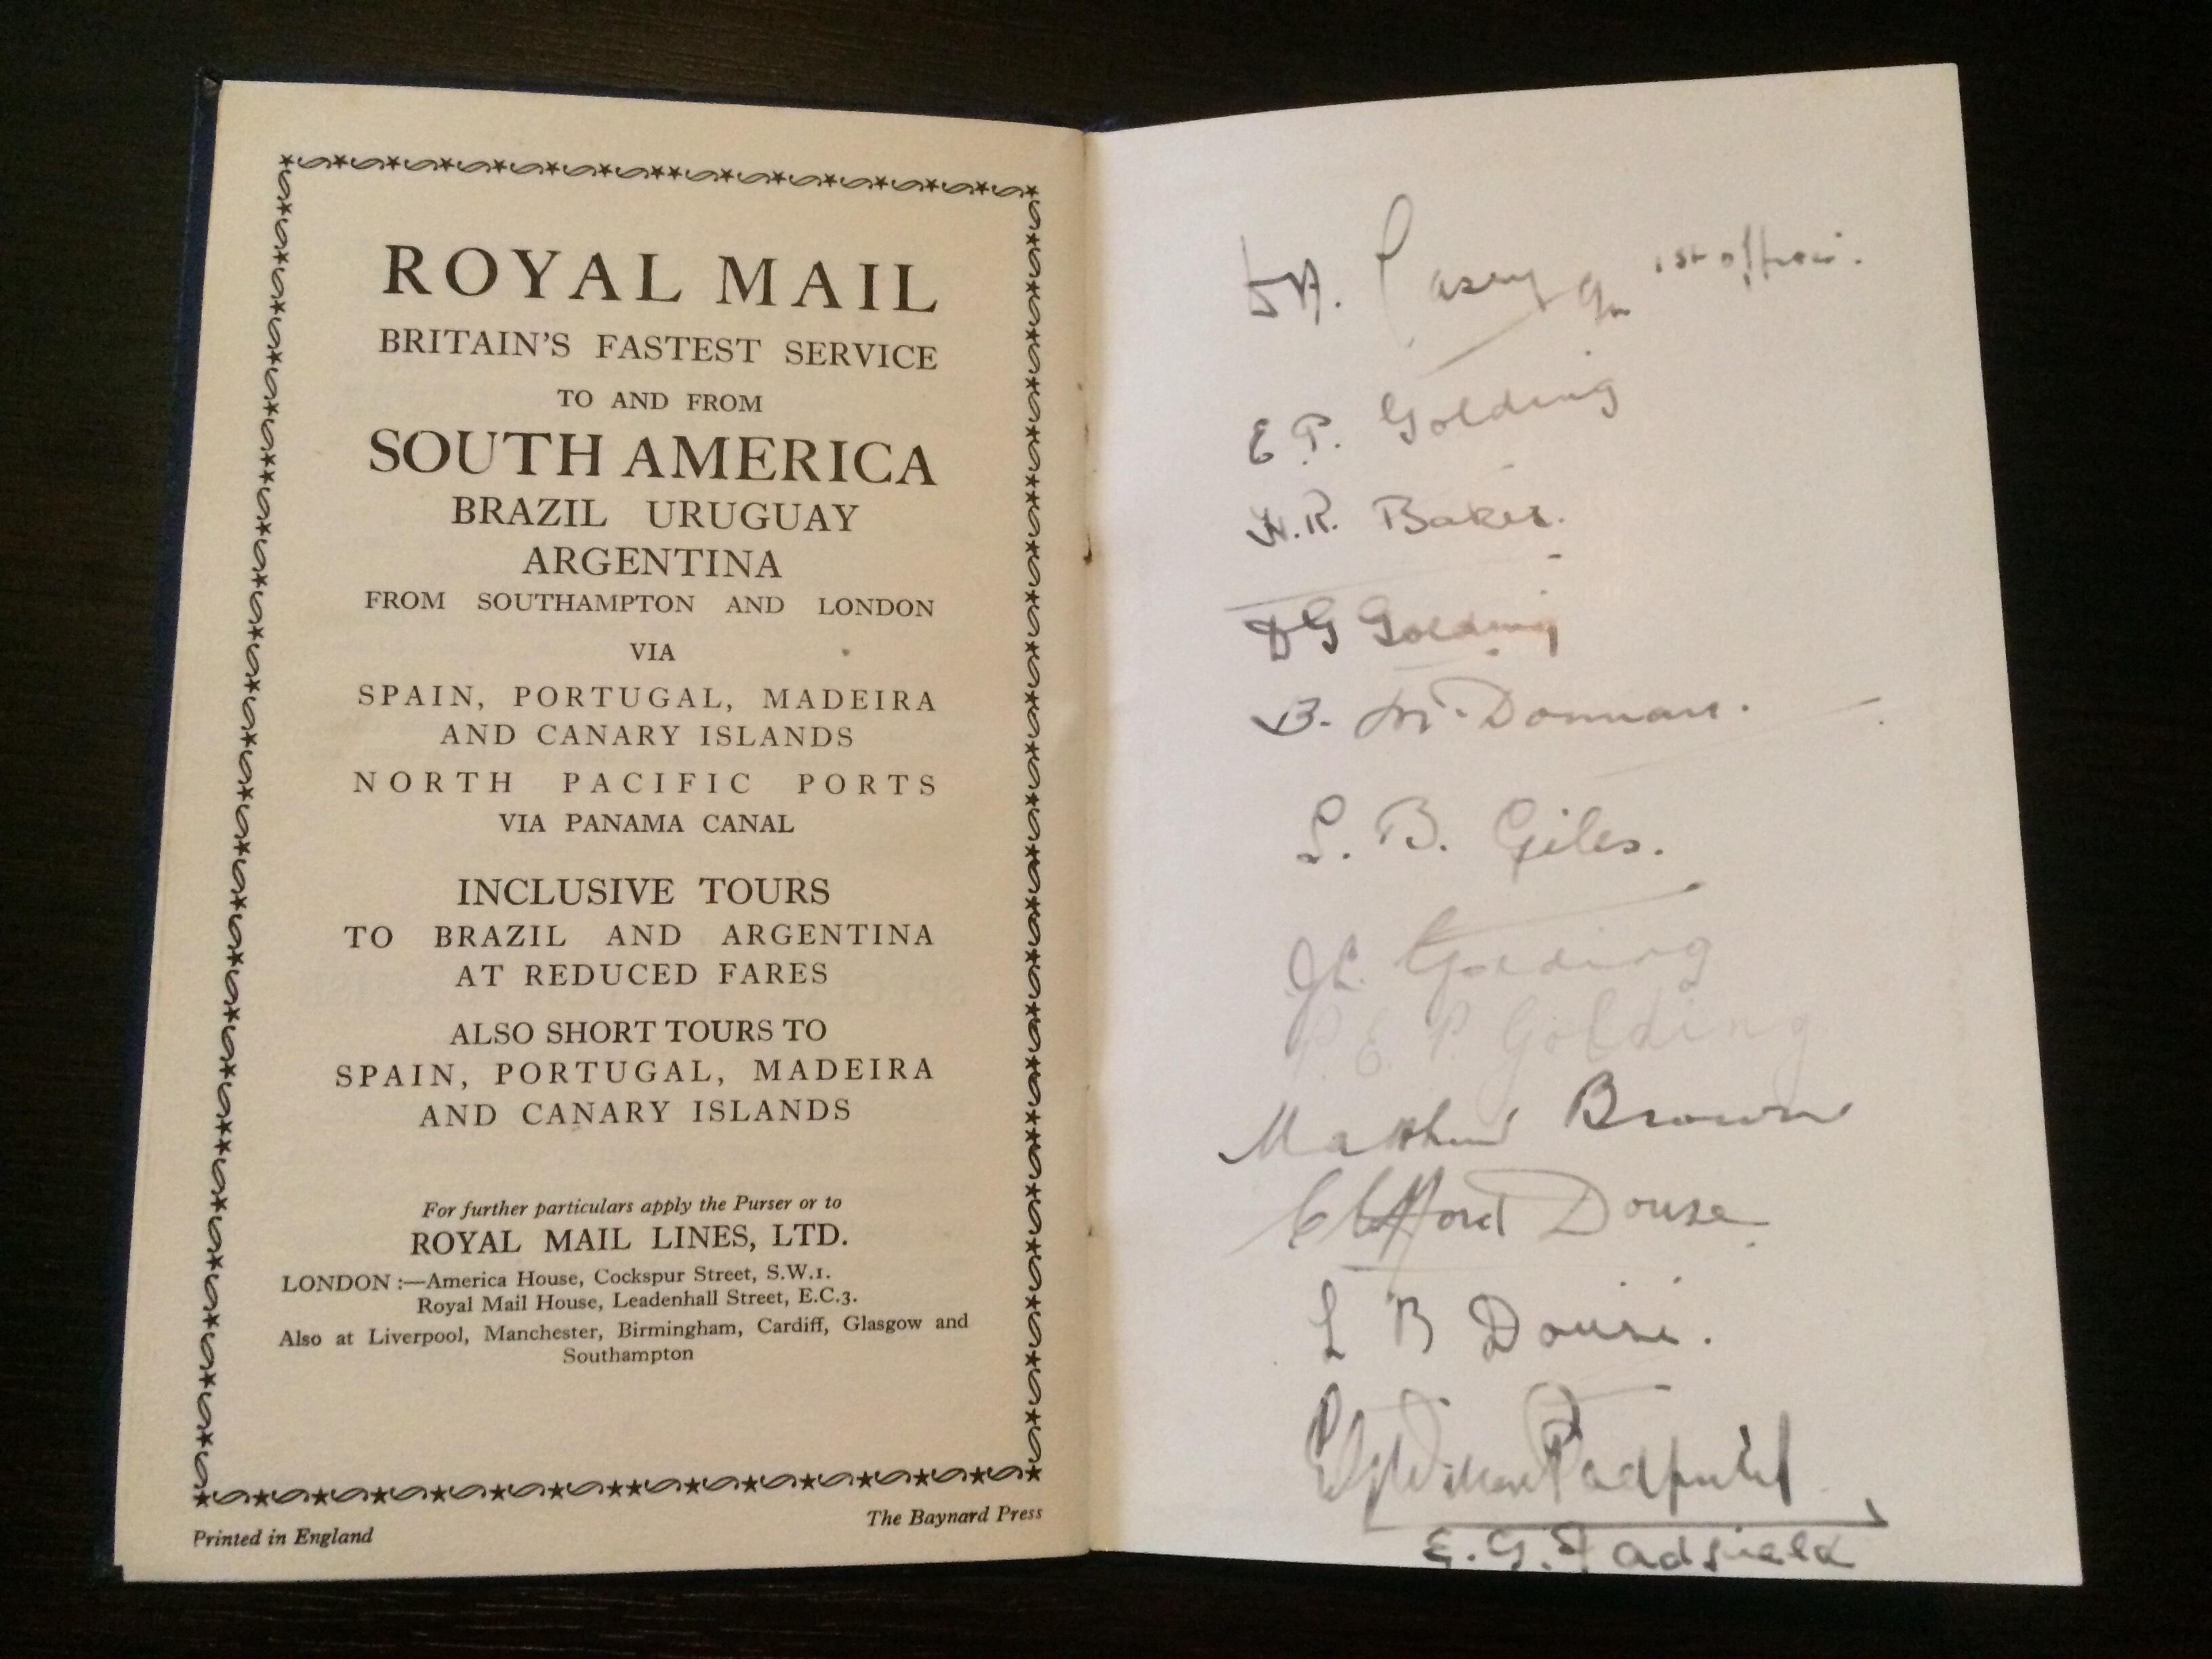 ROYAL MAIL
BRITAIN'S FASTEST SERVICE
TO AND FROM
SOUTH AMERICA
BRAZIL URUGUAY
ARGENTINA
FROM SOUTHAMPTON AND LONDON
VIA
SPAIN, PORTUGAL, MADEIRA
AND CANARY ISLANDS
NORTH PACIFIC PORTS
VIA PANAMA CANAL
INCLUSIVE TOURS
TO BRAZIL AND ARGENTINA
AT REDUCED FARES
ALSO SHORT TOURS TO
SPAIN, PORTUGAL, MADEIRA
AND CANARY ISLANDS
For further particulars apply the Purser or to
ROYAL MAIL LINES, LTD.
LONDON :—America House, Cockspur Street, S.W.1.
Royal Mail House, Leadenhall Street, E.C.3.
Also at Liverpool, Manchester, Birmingham, Cardiff, Glasgow and
Southampton
The Baynard Press
Printed in England
Casey 1st officer.
E P. Golding
W.R. Baker.
D G Golding
B.
L. B. Giles.
Golding
P. E. P. Golding
Matthew Brown
Clifford Douse
L B Douse.
Padfield
E. G. Padfield